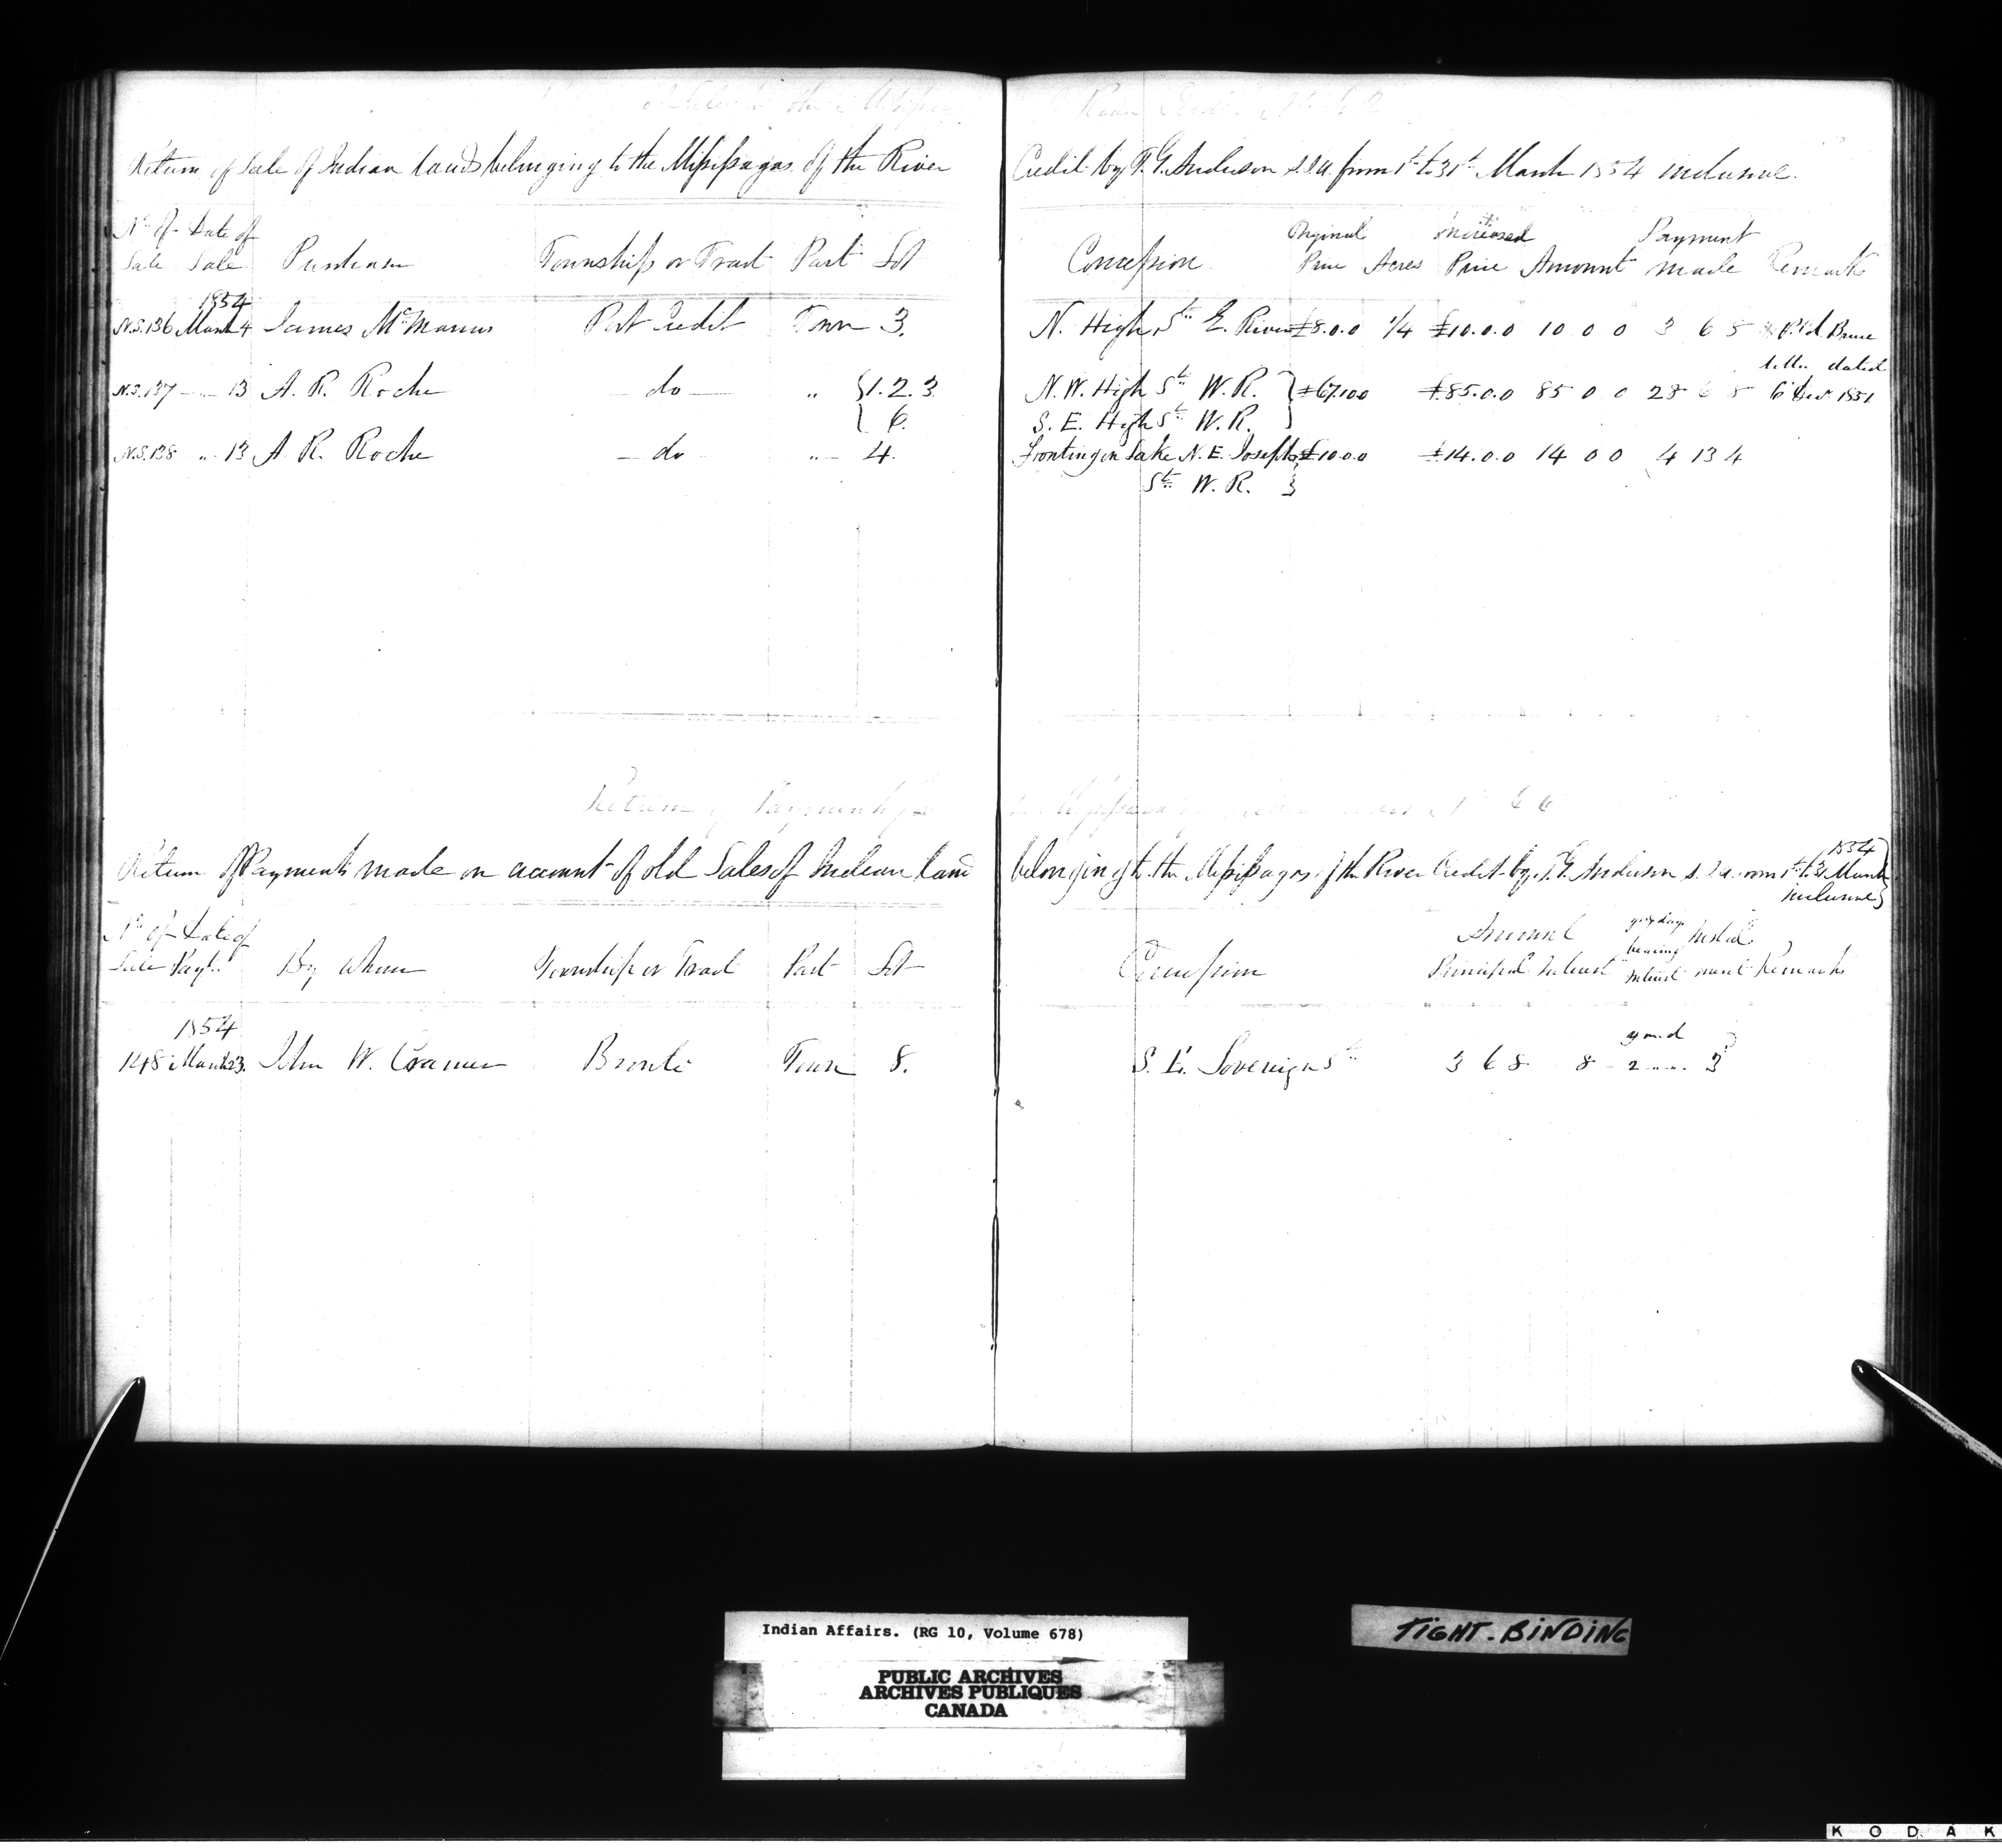 Return of Sale of Indian Lands belonging to the Missisagas of the River Credit by T. G. Anderson S.I.A. from 1st to 31st March 1854 inclusive.
No. of Sale Date of Sale Purchaser Township or Tract Part Lot Concession Original Price Acres Increased Price Amount Payment made Remarks
1854
N.S. 136 March 4 James McManus Port Credit Town 3. N. High St. E. River £8.0.0 1/4 £10.0.0 10 0 0 3 6 8 Bruce
letter dated
N.S. 137 " 13 A. R. Roche do " 1. 2. 3. N. W. High St. W. R. £67.10.0 £85.0.0 85 0 0 28 6 8 1851
6. S. E. High St. W. R.
N.S. 138 " 13 A. R. Roche do " 4. Fronting on Lake N. E. Joseph £10.0.0 £14.0.0 14 0 0 4 13 4
St. W. R.
Return of Payments made on account of old Sales of Indian Land belonging to the Missisagas of the River Credit by T. G. Anderson S.I.A. from 1st to 31 March 1854 inclusive
No. of Sale Date of Payt. By Whom Township or Tract Part Lot Concession Amount Principal Interest bearing Interest Instalment Remarks
1854 y m d
148 March 23. John W. Cramer Bronte Town 8. S. E. Sovereign St. 3 6 8 8 2 " " 3
Indian Affairs. (RG 10, Volume 678)
PUBLIC ARCHIVES
ARCHIVES PUBLIQUES
CANADA
TIGHT. BINDING
KODAK